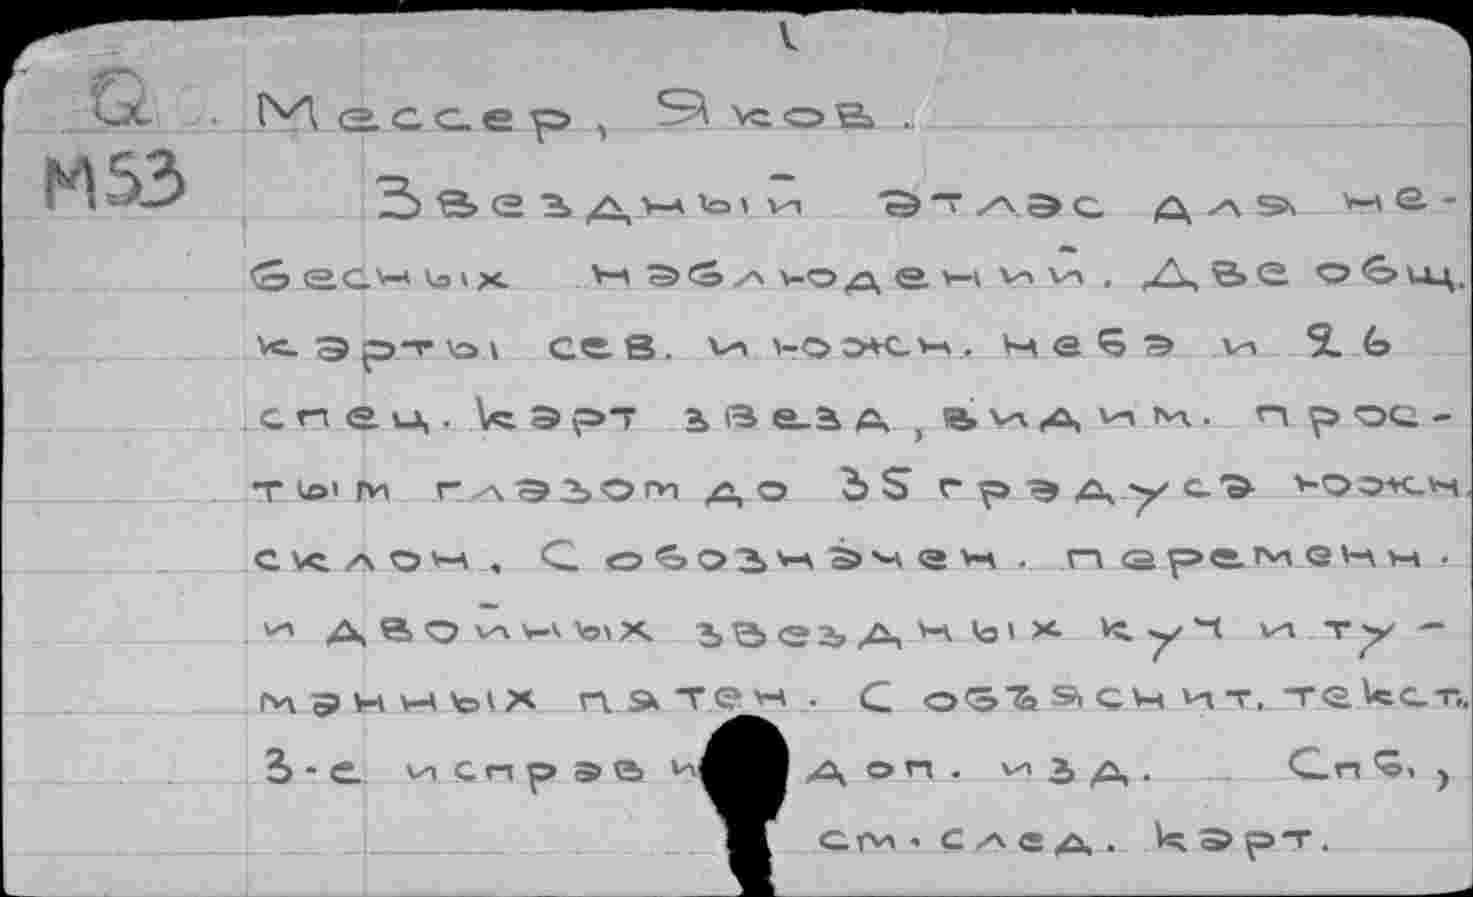 Q Мессер, Яков.
М53 Звездный атлас для не-
бесных наблюдений. Две общ.
карты сев. и южн. неба и 26
спец. карт звезд, видим. прос-
тым глазом до 35 градуса южн.
склон. С обозначен. перемeнн.
и двойных звездных куч и ту-
манных пятен. С объяснит. текст.
3-е исправ и доп. изд. Спб.,
см. след. карт.